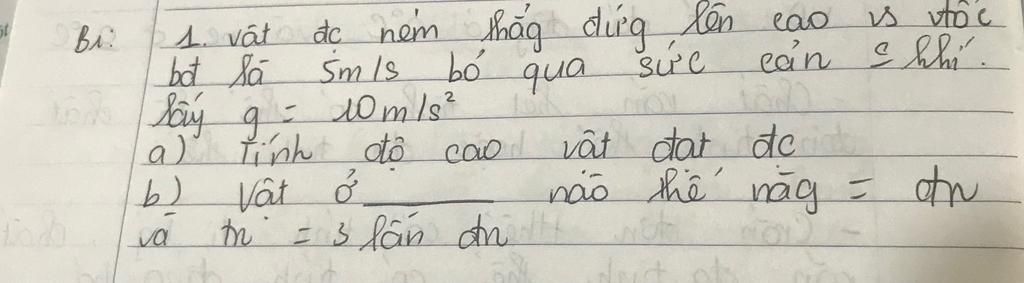 B1: 1. vật đc ném thẳg đứg lên cao vs vtốc
bđ là 5m/s bỏ qua sức cản = khí.
lấy g = 10m/s²
a) Tính độ cao vật đạt đc
b) Vật ở ______ nào thế năg = đn
và tn = 3 lần đn